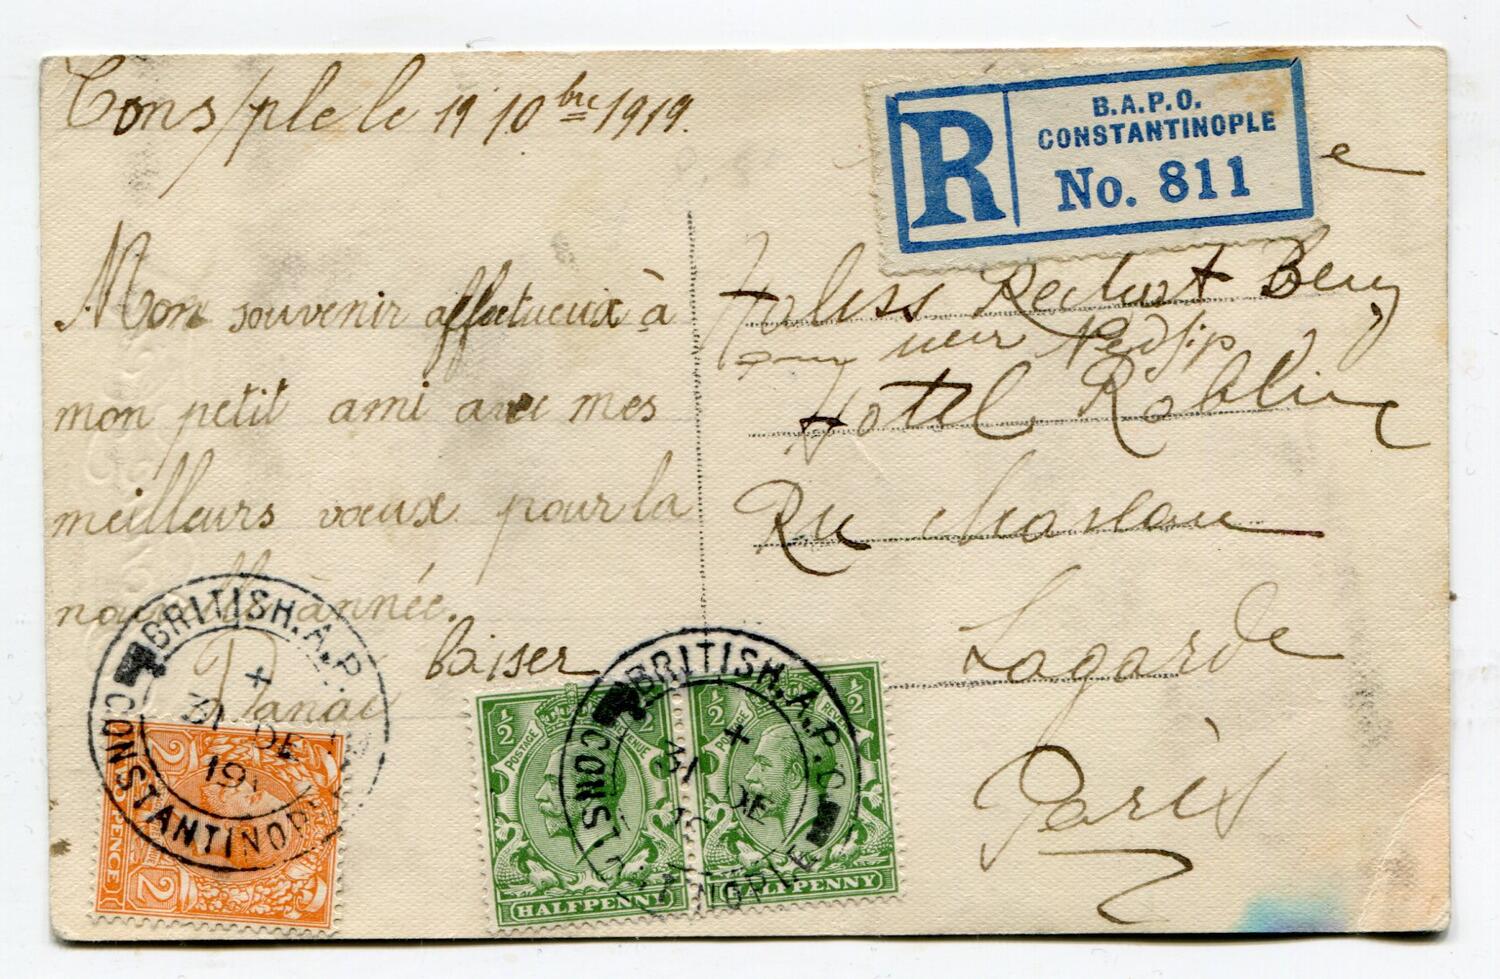 Cons/ple le 19 10bre 1919.
Mon souvenir affectueux à
mon petit ami avec mes
meilleurs vœux pour la
nouvelle année.
baiser
R
B.A.P.O.
CONSTANTINOPLE
No. 811
Hotel
Ru
Lagarde
Paris
BRITISH.A.P.O
CONSTANTINOPLE
31 DE
19
2 2
PENCE
BRITISH.A.P.O
CONST.NOPLE
31 DE
1/2 1/2
POSTAGE REVENUE
HALFPENNY
1/2 1/2
POSTAGE REVENUE
HALFPENNY